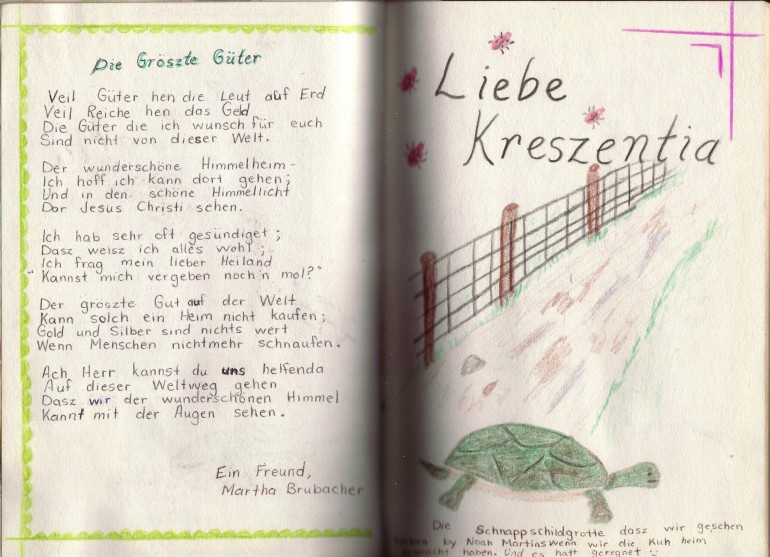 Die Gröszte Güter
Veil Güter hen die Leut auf Erd
Veil Reiche hen das Geld
Die Güter die ich wunsch für euch
Sind nicht von dieser Welt.
Der wunderschöne Himmelheim-
Ich hoff ich kann dort gehen;
Und in den schöne Himmellicht
Dor Jesus Christi sehen.
Ich hab sehr oft gesündiget;
Dasz weisz ich alles wohl;
Ich frag mein lieber Heiland
"Kannst mich vergeben noch'n mol?"
Der groszte Gut auf der Welt
Kann solch ein Heim nicht kaufen;
Gold und Silber sind nichts wert
Wenn Menschen nichtmehr schnaufen.
Ach Herr kannst du uns helfenda
Auf dieser Weltweg gehen
Dasz wir der wunderschönen Himmel
Kannt mit der Augen sehen.
Ein Freund,
Martha Brubacher
Liebe
Kreszentia
Die Schnappschildgrotte dasz wir geschen
haben by Noah Martinswenn wir die Kuh heim
haben. Und es hatt geregnet